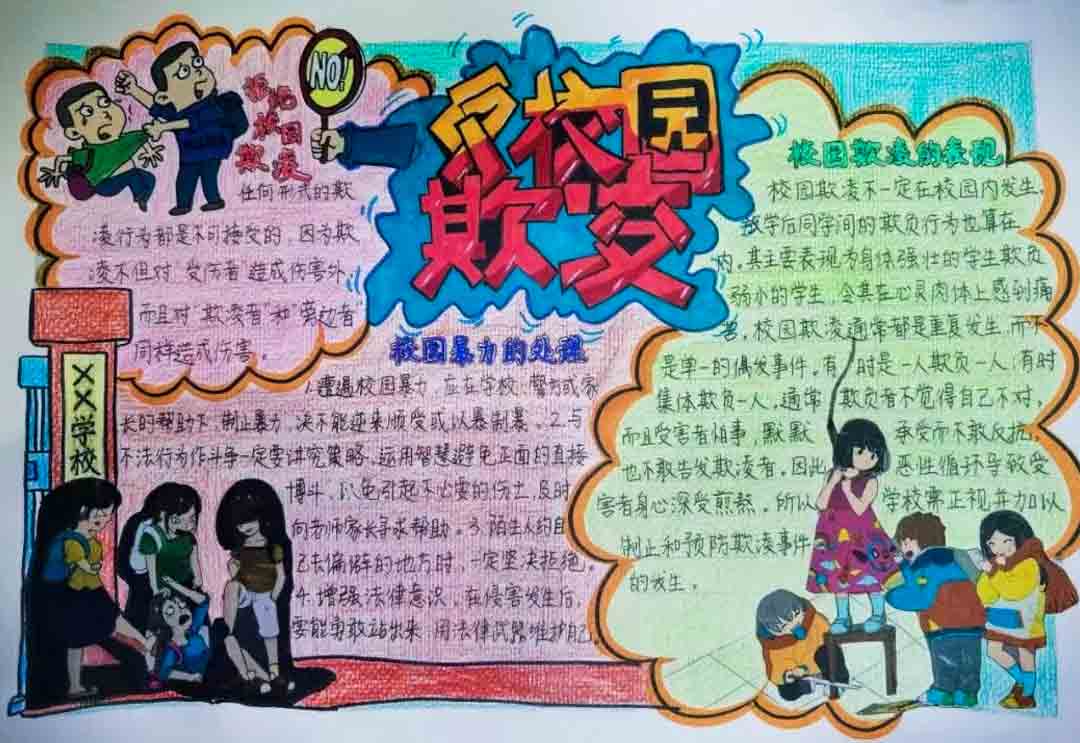 反校园
欺凌
NO!
拒绝
校园
欺凌
任何形式的欺
凌行为都是不可接受的,因为欺
凌不但对“受伤者”造成伤害外,
而且对“欺凌者”和“旁边者”
同样造成伤害。
××学校
校园暴力的处理
1.遭遇校园暴力,应在学校、警方或家
长的帮助下,制止暴力,决不能逆来顺受或以暴制暴。2.与
不法行为作斗争一定要讲究策略,运用智慧避免正面的直接
搏斗,以免引起不必要的伤亡,及时
向老师家长寻求帮助。3.陌生人约自
己去偏僻的地方时,一定坚决拒绝。
4.增强法律意识,在侵害发生后,
要能勇敢站出来,用法律武器维护自己。
校园欺凌的表现
校园欺凌不一定在校园内发生,
放学后同学间的欺负行为也算在
内。其主要表现为身体强壮的学生欺负
弱小的学生,令其在心灵肉体上感到痛
苦,校园欺凌通常都是重复发生,而不
是单一的偶发事件。有时是一人欺负一人,有时
集体欺负一人,通常欺负者不觉得自己不对,
而且受害者怕事,默默承受而不敢反抗,
也不敢告发欺凌者。因此恶性循环导致受
害者身心深受煎熬。所以学校需正视并力加以
制止和预防欺凌事件
的发生。